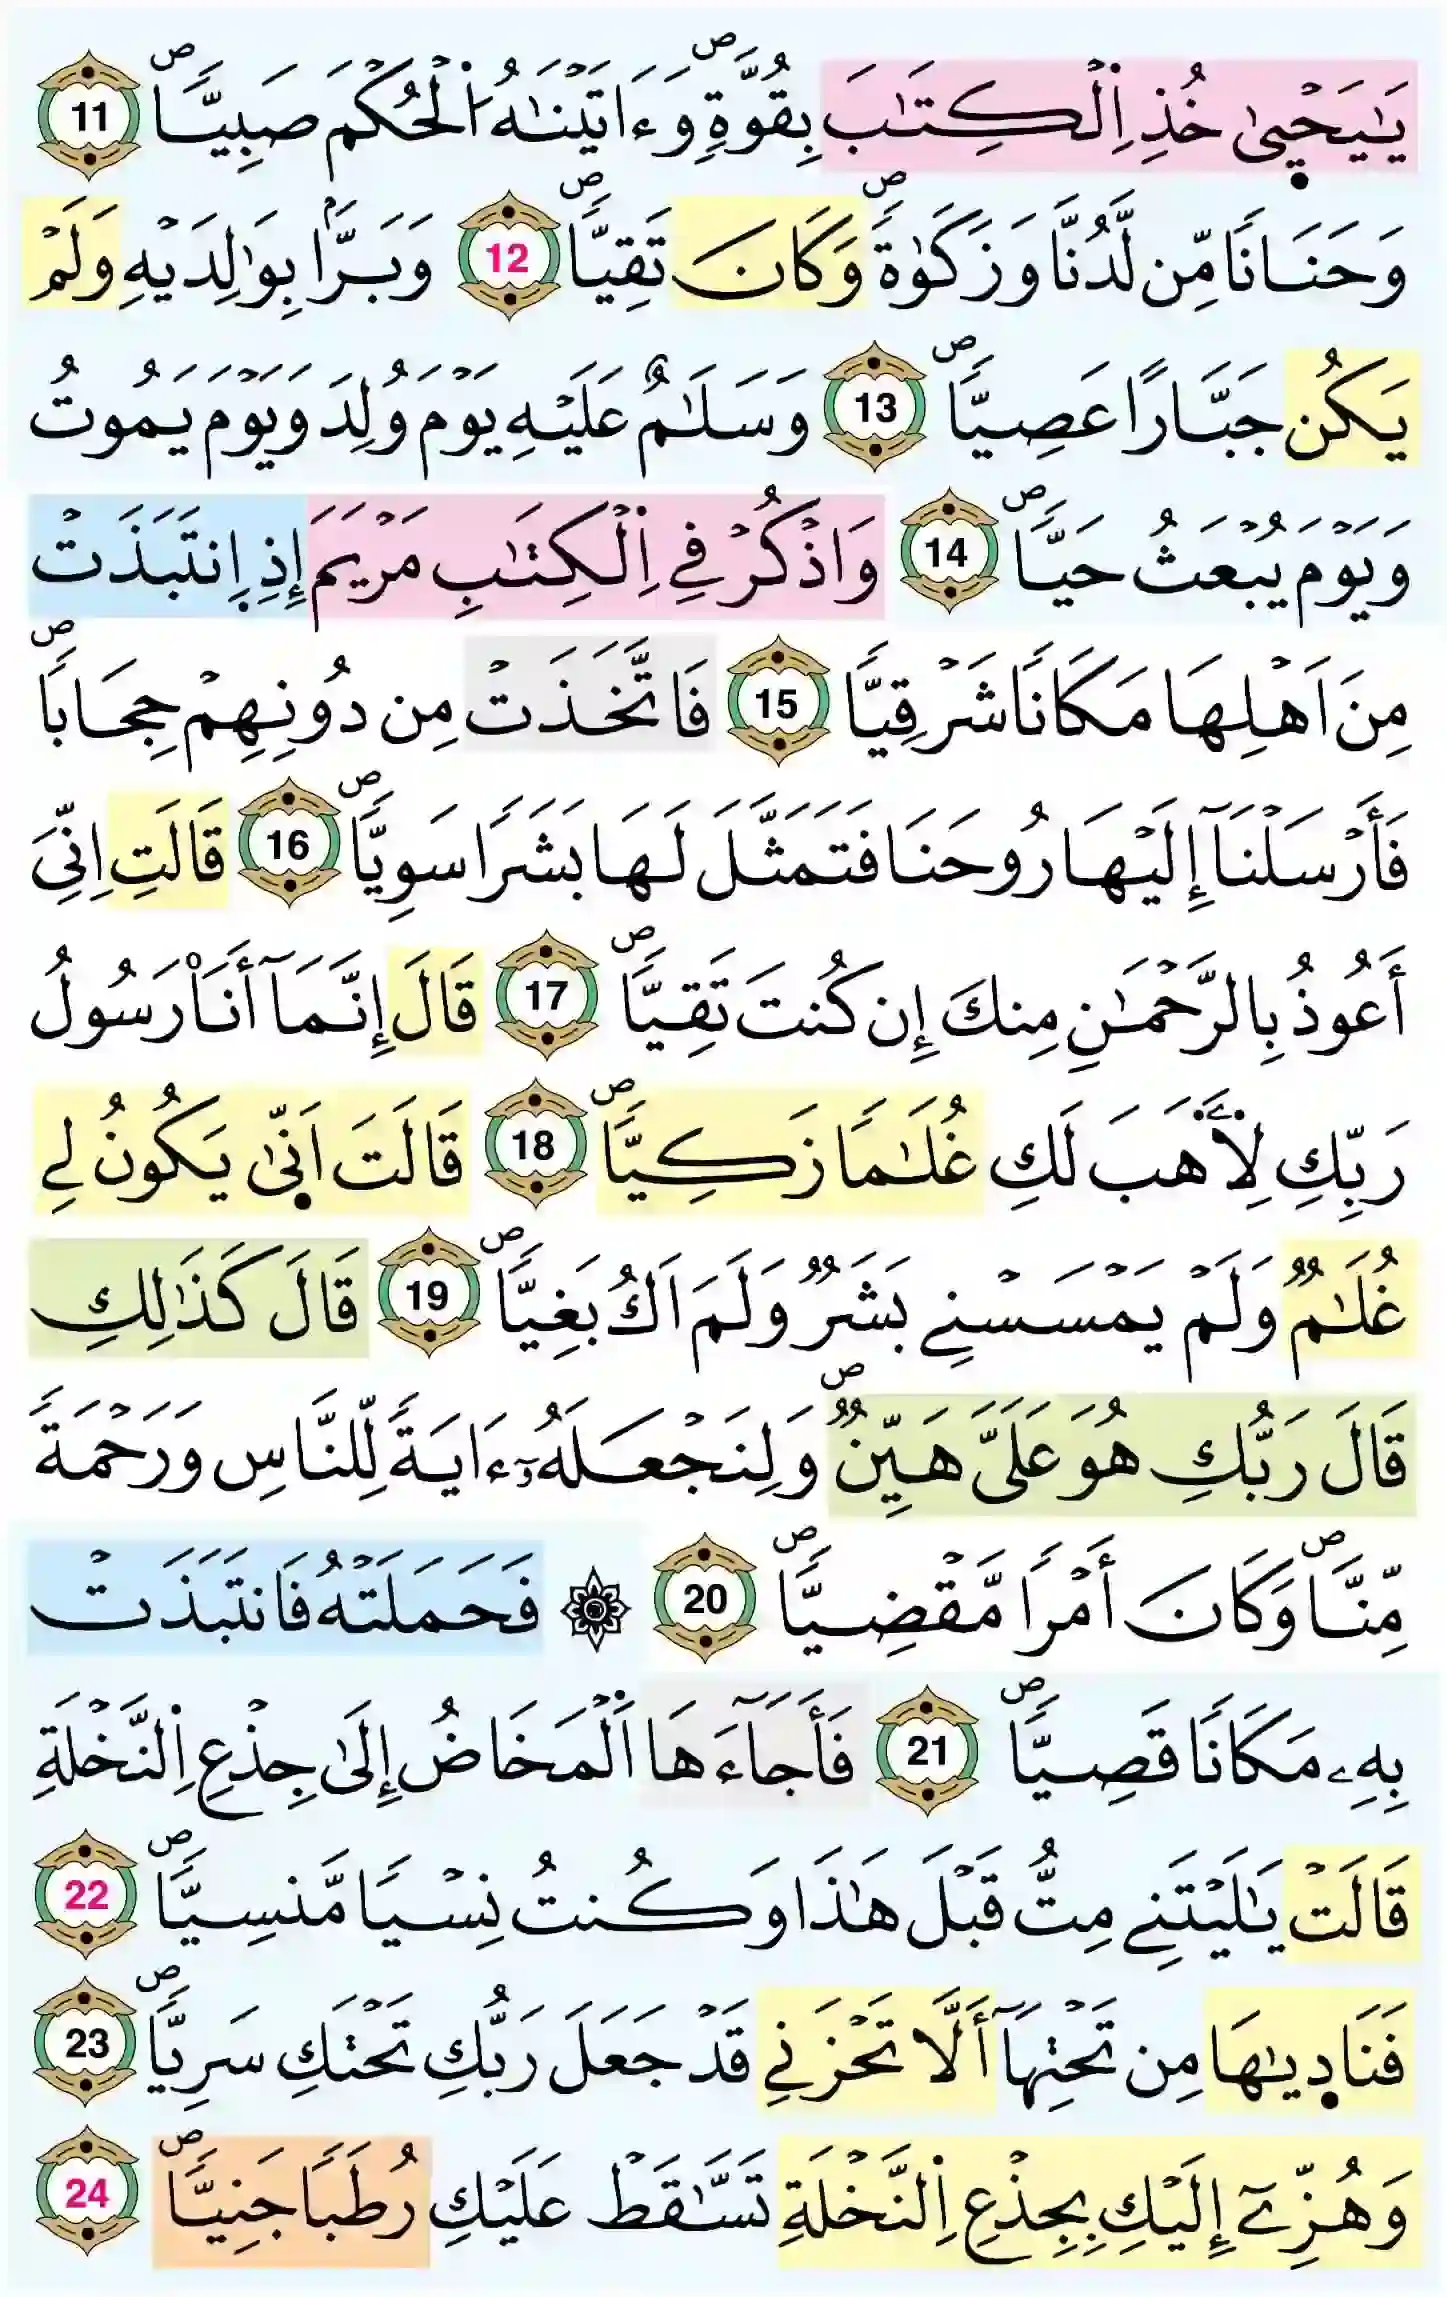 يَٰيَحْيىٰ خُذِ اِ۬لْكِتَٰبَ بِقُوَّةٖۖ وَءَاتَيْنَٰهُ اُ۬لْحُكْمَ صَبِيّاٗۖ 11
وَحَنَاناٗ مِّن لَّدُنَّا وَزَكَوٰةٗۖ وَكَانَ تَقِيّاٗۖ 12 وَبَرّاَۢ بِوَٰلِدَيْهِ وَلَمْ
يَكُن جَبَّاراً عَصِيّاٗۖ 13 وَسَلَٰمٌ عَلَيْهِ يَوْمَ وُلِدَ وَيَوْمَ يَمُوتُ
وَيَوْمَ يُبْعَثُ حَيّاٗۖ 14 وَاذْكُرْ فِے اِ۬لْكِتَٰبِ مَرْيَمَ إِذِ اِ۪نتَبَذَتْ
مِنَ اَهْلِهَا مَكَاناٗ شَرْقِيّاٗ 15 فَاتَّخَذَتْ مِن دُونِهِمْ حِجَاباٗۖ
فَأَرْسَلْنَآ إِلَيْهَا رُوحَنَا فَتَمَثَّلَ لَهَا بَشَراٗ سَوِيّاٗۖ 16 قَالَتِ اِنِّيَ
أَعُوذُ بِالرَّحْمَٰنِ مِنكَ إِن كُنتَ تَقِيّاٗۖ 17 قَالَ إِنَّمَآ أَنَا۠ رَسُولُ
رَبِّكِ لِأَهَبَ لَكِ غُلَٰماٗ زَكِيّاٗۖ 18 قَالَتَ اَنّ۪ىٰ يَكُونُ لِے
غُلَٰمٞ وَلَمْ يَمْسَسْنِے بَشَرٞ وَلَمَ اَكُ بَغِيّاٗۖ 19 قَالَ كَذَٰلِكِ
قَالَ رَبُّكِ هُوَ عَلَيَّ هَيِّنٞۖ وَلِنَجْعَلَهُۥٓ ءَايَةٗ لِّلنَّاسِ وَرَحْمَةٗ
مِّنَّاۖ وَكَانَ أَمْراٗ مَّقْضِيّاٗۖ 20 ۞ فَحَمَلَتْهُ فَانتَبَذَتْ
بِهِۦ مَكَاناٗ قَصِيّاٗۖ 21 فَأَجَآءَهَا اَ۬لْمَخَاضُ إِلَىٰ جِذْعِ اِ۬لنَّخْلَةِ
قَالَتْ يَٰلَيْتَنِے مِتُّ قَبْلَ هَٰذَا وَكُنتُ نِسْياٗ مَّنسِيّاٗۖ 22
فَنَاد۪يٰهَا مِن تَحْتِهَآ أَلَّا تَحْزَنِے قَدْ جَعَلَ رَبُّكِ تَحْتَكِ سَرِيّاٗۖ 23
وَهُزِّےٓ إِلَيْكِ بِجِذْعِ اِ۬لنَّخْلَةِ تَسَّٰقَطْ عَلَيْكِ رُطَباٗ جَنِيّاٗۖ 24